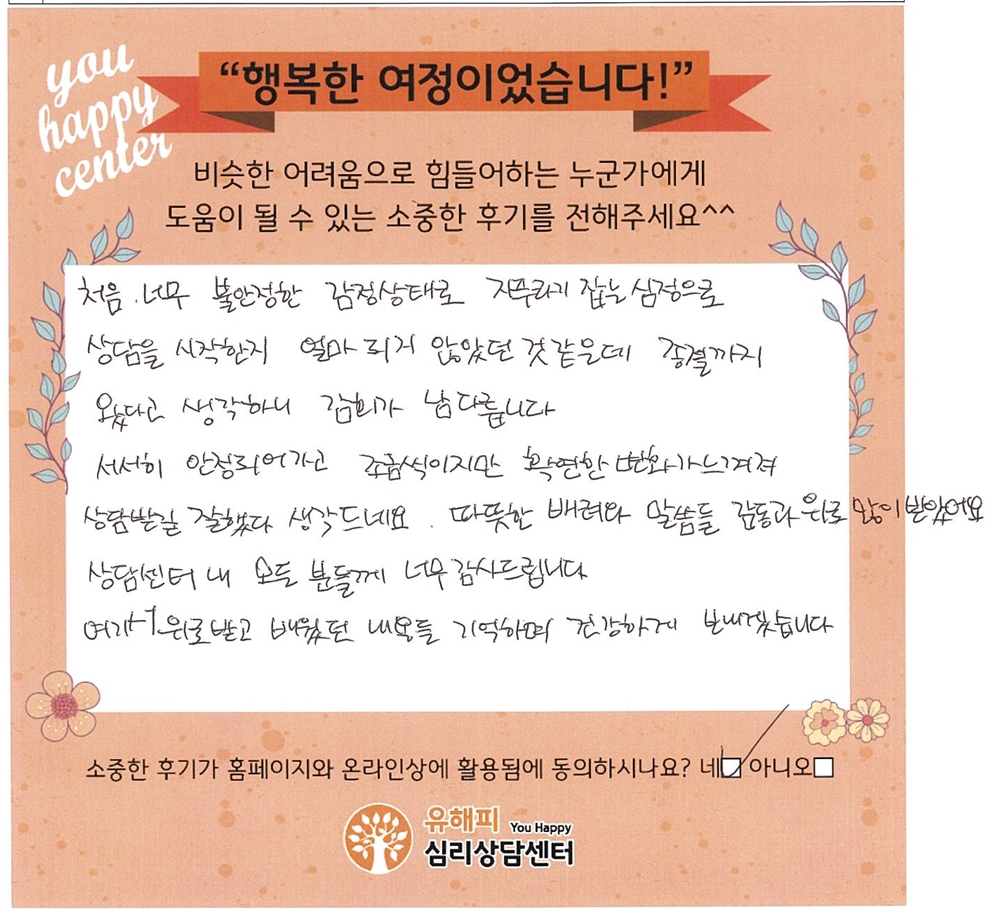 you
happy
center
“행복한 여정이었습니다!”
비슷한 어려움으로 힘들어하는 누군가에게
도움이 될 수 있는 소중한 후기를 전해주세요^^
처음, 너무 불안정한 감정상태로 지푸라기 잡는 심정으로
상담을 시작한지 얼마 되지 않았던 것 같은데 종결까지
왔다고 생각하니 감회가 남다릅니다
서서히 안정되어가고 조금씩이지만 확연한 변화가 느껴져
상담받길 잘했다 생각드네요. 따뜻한 배려와 말씀들 감동과 위로 많이 받았어요
상담센터 내 모든 분들께 너무 감사드립니다
여기서 위로받고 배웠던 내용들 기억하며 건강하게 보내겠습니다
소중한 후기가 홈페이지와 온라인상에 활용됨에 동의하시나요? 네 아니오
유해피 You Happy
심리상담센터